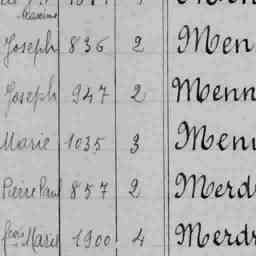 Joseph 836 2 Men
Joseph 947 2 Menn
Marie 1035 3 Menn
Pierre Paul 857 2 Merd
Marie 1900 4 Merdr